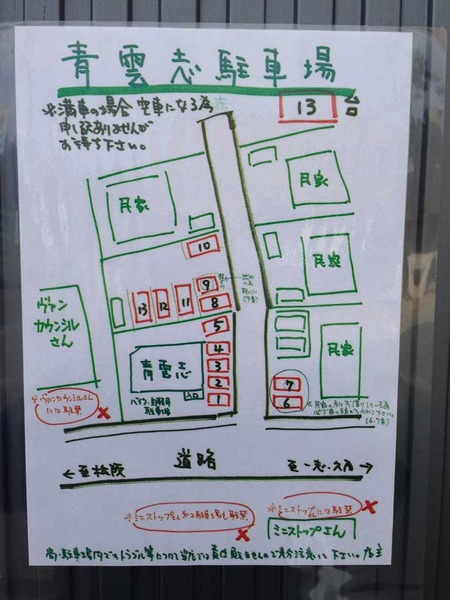 青雲志駐車場
※満車の場合 空車になる為
申し訳ありませんが
お待ち下さい。
13 台
民家
民家
10
民家
ヴァン
カウンシル
さん
13 12 11
9
8
5
4
3
2
1
青雲志
バイク 自転車
駐車場
入口
民家
7
6
(6.7番)
※ヴァンカウンシルさん
には駐禁 ×
← 至松阪
道路
至一志、久居 →
※ミニストップさんの駐車場も駐禁 ×
※ミニストップには駐禁 ×
ミニストップさん
尚、駐車場内でのトラブル等につきまして当店では責任取れませんので充分注意して下さい。店主